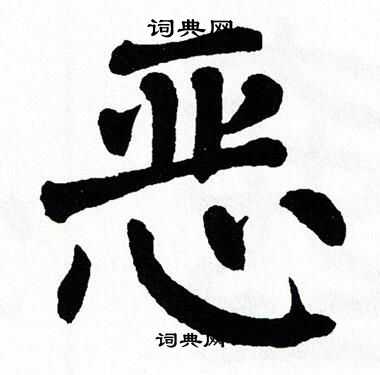 词典网
恶
词典网